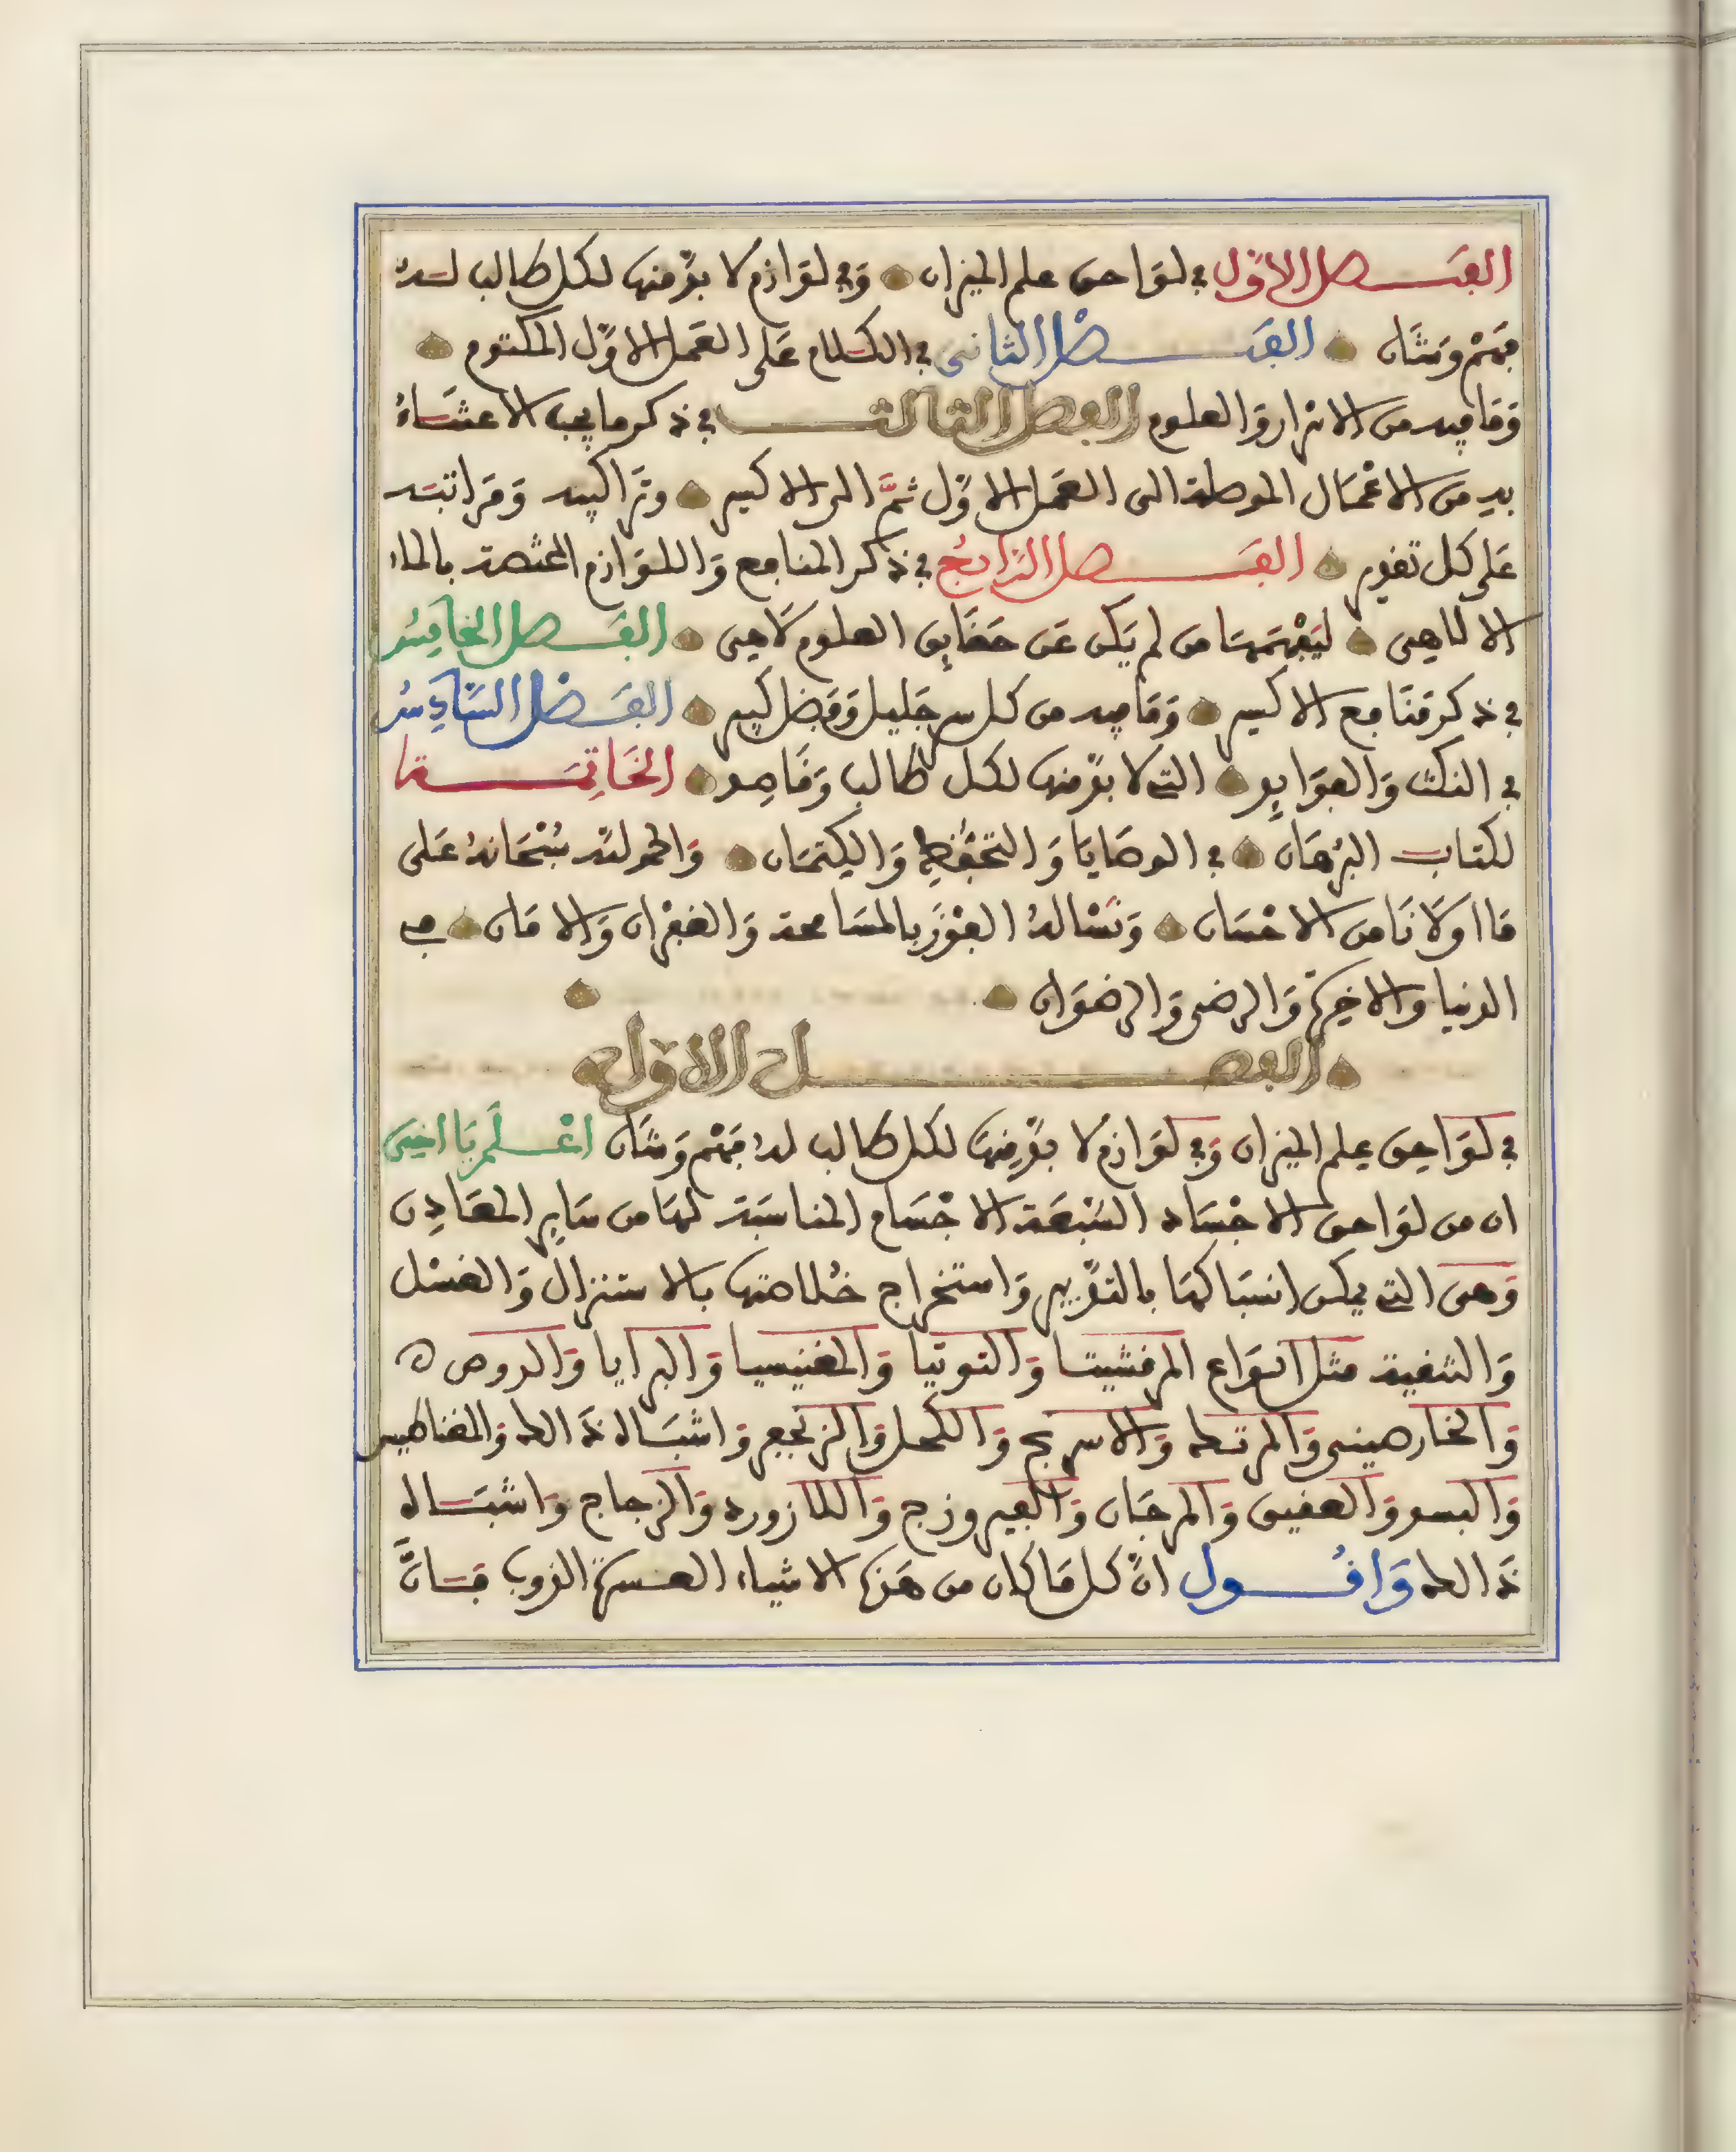 الفصل الاوّل في لوَاحق علم الميزان وَفي لوَازم لا بدّ منها لكل طالب لـه
فهْم وَشَان الفَصْل الثاني في الكلام عَلى العَمل الاوّل المكتوم
وَمَا فيه من الاسرار وَالعلوم الفصل الثالث في ذكر ما يجب الاعتنَاءُ
به من الاعْمَال الموصلة الى العَمل الاوّل ثمَّ الى الاكسير وترَاكيبه وَمرَاتبه
عَلى كل تقدير الفَصل الرَّابعُ في ذكر المنافع وَاللوَازم المختصة بالماء
الالاهى ليَفْهَمَهَا مَن لم يَكن عَن حَقَايق العلوم لاَهِى الفَصل الخامِسُ
في ذكر مَنَافع الاكسير وَمَا فيه من كل سر جَليل وَفضل كبير الفَصْل السَّادِسُ
في النكت وَالفوَايد التي لا بدّ منها لكل طالب وَقَاصِد الخَاتِمَة
لكتاب البرْهَان في الوصَايَا وَالتحَفّظِ وَالكِتمَان وَالحمد لله سُبْحَانهُ عَلى
مَا اولاَنَا من الاحْسَان وَنَسْالهُ الفَوْزَ بالمسَامحة وَالغفْرَان وَالامَان في
الدنيا والاخِرَة وَالرضى وَالرضوَان
الفصل الاوّل
في لوَاحِق عِلم الميزان وَفي لوَازم لا بدّ مِنهَا لكل طالب لهُ فهْم وَشَان اعْلَم يَا اخِى
ان من لوَاحق الاجْسَاد السَّبْعَة الاجْسَام المناسَبَة لهَا من سَايِر المعَادِن
وَهى التي يمكن انسبَاكهَا بالتدْبير وَاستخرَاج خُلاصتها بالاستنزال وَالغسْل
وَالتنقية مثل انوَاع المرقشيتا وَالتوتيا وَالمغنيسيا وَالبرَايا وَالدوص
وَالخارصينى وَالمرتك وَالاسرنج وَالكحل وَالزنجفر وَاشبَاه ذَالك وَالمغناطيس
وَالبسد وَالعقيق وَالمرجَان وَالفيروزج وَاللازورد وَالزجاج وَاشبَاه
ذَالك وَاقُول انّ كل مَا كان من هَذه الاشياء العسرة الذوب فـانَّ